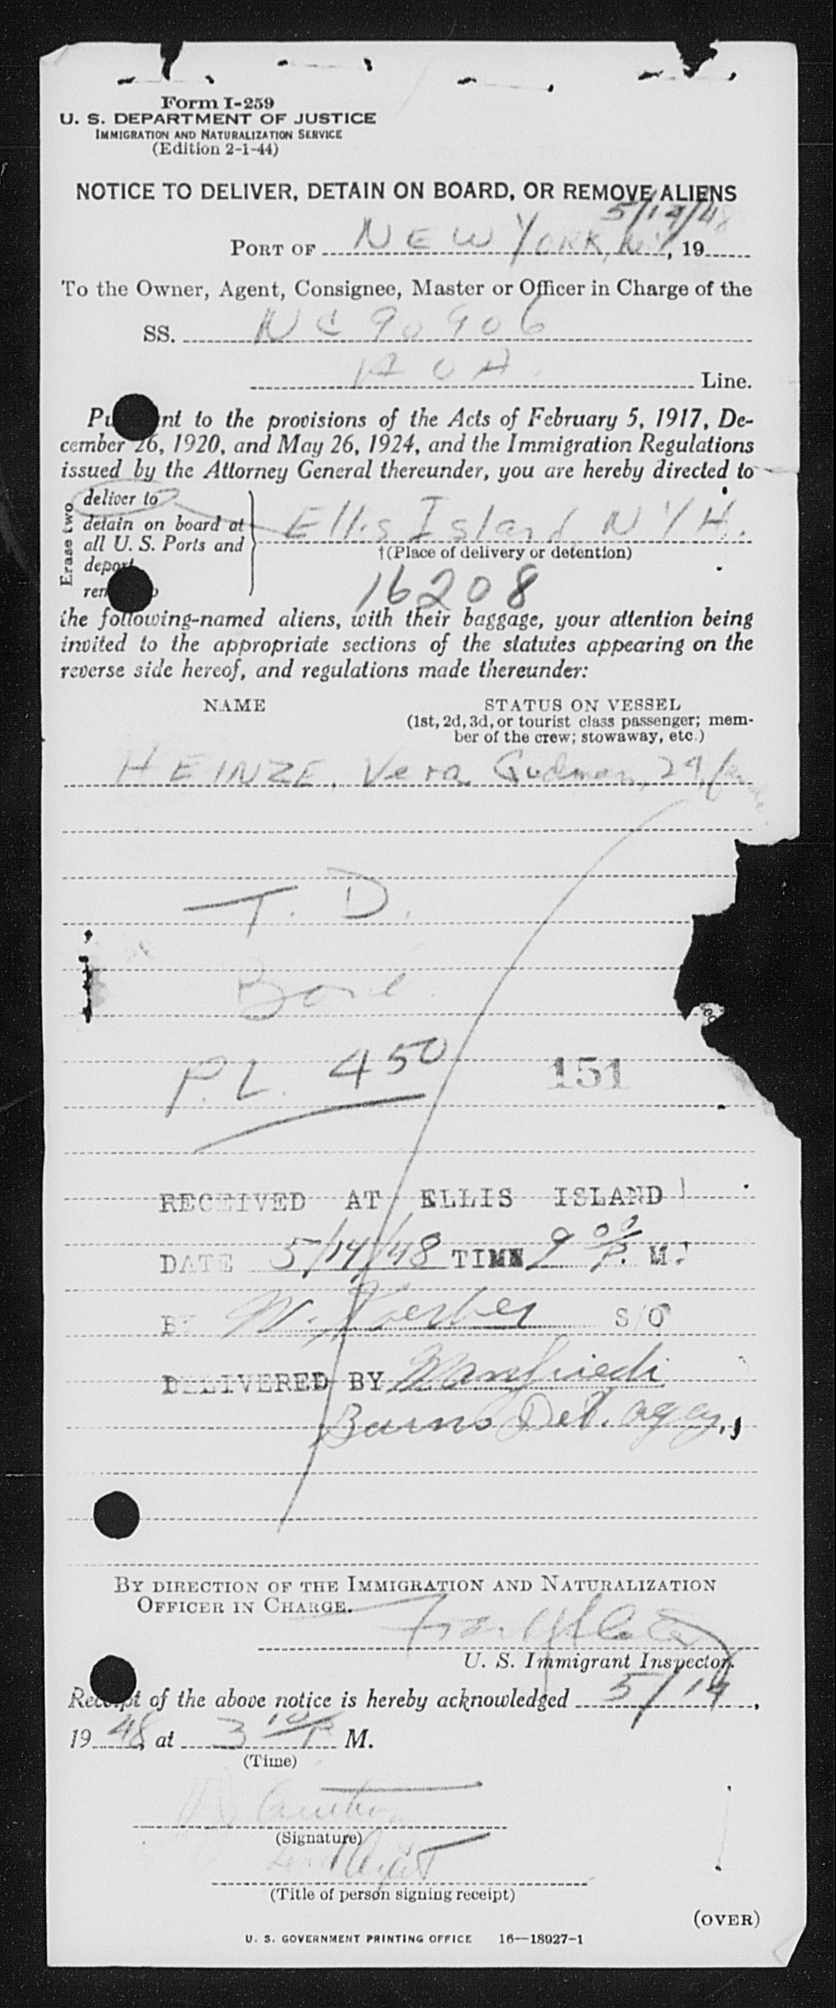 Form I-259
U. S. DEPARTMENT OF JUSTICE
IMMIGRATION AND NATURALIZATION SERVICE
(Edition 2-1-44)
NOTICE TO DELIVER, DETAIN ON BOARD, OR REMOVE ALIENS
5/14/48
PORT OF NEW YORK, N.Y., 19
To the Owner, Agent, Consignee, Master or Officer in Charge of the
SS. NC 90906
AOA Line.
Pu nt to the provisions of the Acts of February 5, 1917, De-
cember 26, 1920, and May 26, 1924, and the Immigration Regulations
issued by the Attorney General thereunder, you are hereby directed to
Erase two
deliver to
detain on board at
all U. S. Ports and
deport
rem o
Ellis Island, NYH.
†(Place of delivery or detention)
16208
the following-named aliens, with their baggage, your attention being
invited to the appropriate sections of the statutes appearing on the
reverse side hereof, and regulations made thereunder:
NAME
STATUS ON VESSEL
(1st, 2d, 3d, or tourist class passenger; mem-
ber of the crew; stowaway, etc.)
HEINZE, Vera Gudmon, 29,
T. D.
P.L. 450
151
RECEIVED AT ELLIS ISLAND
DATE 5/14/48 TIME 9 00 P. M.
BY W. Koerber S/O
DELIVERED BY Manfriedi
Burns Det. agcy.,
BY DIRECTION OF THE IMMIGRATION AND NATURALIZATION
OFFICER IN CHARGE.
U. S. Immigrant Inspector.
Receipt of the above notice is hereby acknowledged 5/14,
19 48, at 3 10 P M.
(Time)
(Signature)
(Title of person signing receipt)
(OVER)
U. S. GOVERNMENT PRINTING OFFICE 16—18927-1